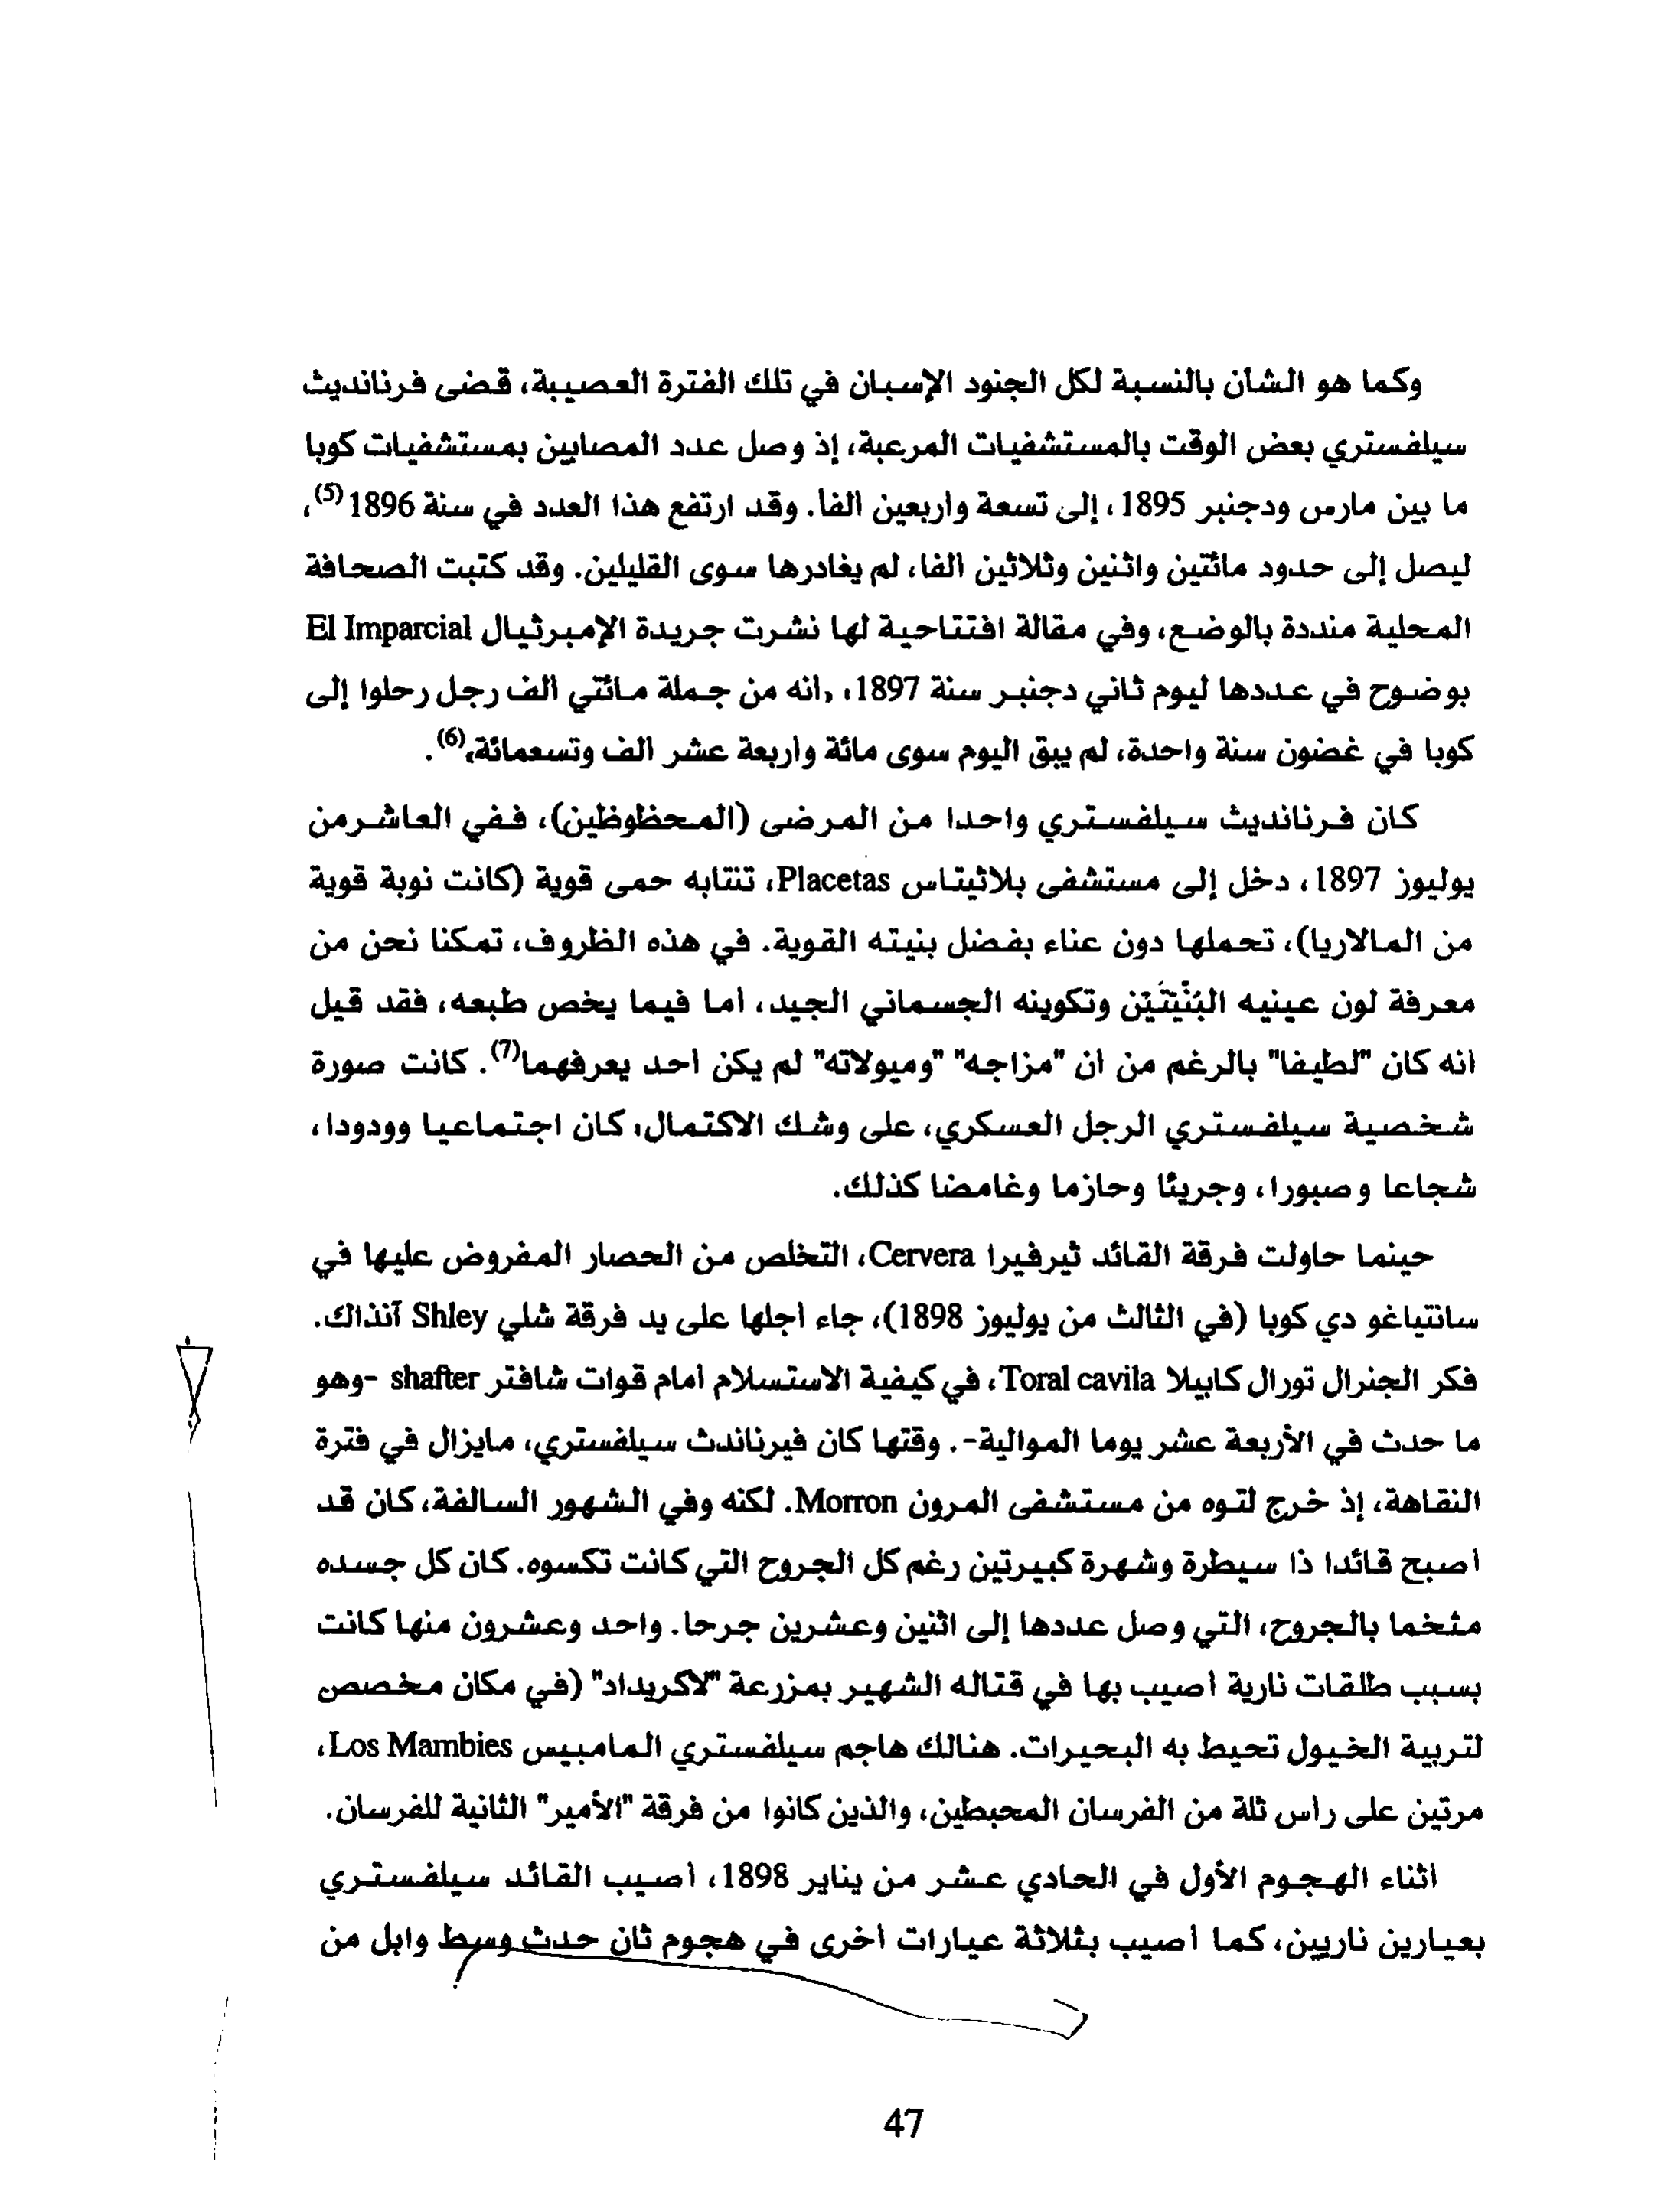 وكما هو الشأن بالنسبة لكل الجنود الإسبان في تلك الفترة العصيبة، قضى فرنانديث
سيلفستري بعض الوقت بالمستشفيات المرعبة، إذ وصل عدد المصابين بمستشفيات كوبا
ما بين مارس ودجنبر 1895، إلى تسعة واربعين الفا. وقد ارتفع هذا العدد في سنة 1896 (5)،
ليصل إلى حدود مائتين واثنين وثلاثين ألفا، لم يغادرها سوى القليلين. وقد كتبت الصحافة
المحلية منددة بالوضع، وفي مقالة افتتاحية لها نشرت جريدة الإمبرثيال El Imparcial
بوضوح في عددها ليوم ثاني دجنبر سنة 1897، «انه من جملة مائتي الف رجل رحلوا إلى
كوبا في غضون سنة واحدة، لم يبق اليوم سوى مائة واربعة عشر الف وتسعمائة»(6).
كان فرنانديث سيلفستري واحدا من المرضى (المحظوظين)، ففي العاشرمن
يوليوز 1897، دخل إلى مستشفى بلاثيتاس Placetas، تنتابه حمى قوية (كانت نوبة قوية
من المالاريا)، تحملها دون عناء بفضل بنيته القوية. في هذه الظروف، تمكنا نحن من
معرفة لون عينيه البُنّيتَيْن وتكوينه الجسماني الجيد، اما فيما يخص طبعه، فقد قيل
انه كان "لطيفا" بالرغم من ان "مزاجه" "وميولاته" لم يكن احد يعرفهما(7). كانت صورة
شخصية سيلفستري الرجل العسكري، على وشك الاكتمال، كان اجتماعيا وودودا،
شجاعا وصبورا، وجريئا وحازما وغامضا كذلك.
حينما حاولت فرقة القائد ثيرفيرا Cervera، التخلص من الحصار المفروض عليها في
سانتياغو دي كوبا (في الثالث من يوليوز 1898)، جاء اجلها على يد فرقة شلي Shley آنذاك.
فكر الجنرال تورال كابيلا Toral cavila، في كيفية الاستسلام امام قوات شافتر shafter -وهو
ما حدث في الأربعة عشر يوما الموالية-. وقتها كان فيرناندث سيلفستري، مايزال في فترة
النقاهة، إذ خرج لتوه من مستشفى المرون Morron. لكنه وفي الشهور السالفة، كان قد
أصبح قائدا ذا سيطرة وشهرة كبيرتين رغم كل الجروح التي كانت تكسوه. كان كل جسده
مثخما بالجروح، التي وصل عددها إلى اثنين وعشرين جرحا. واحد وعشرون منها كانت
بسبب طلقات نارية أصيب بها في قتاله الشهير بمزرعة "لاكريداد" (في مكان مخصص
لتربية الخيول تحيط به البحيرات. هنالك هاجم سيلفستري المامبيس Los Mambies،
مرتين على راس ثلة من الفرسان المحبطين، والذين كانوا من فرقة "الأمير" الثانية للفرسان.
أثناء الهجوم الأول في الحادي عشر من يناير 1898، أصيب القائد سيلفستري
بعيارين ناريين، كما أصيب بثلاثة عيارات أخرى في هجوم ثان حدث وسط وابل من
47